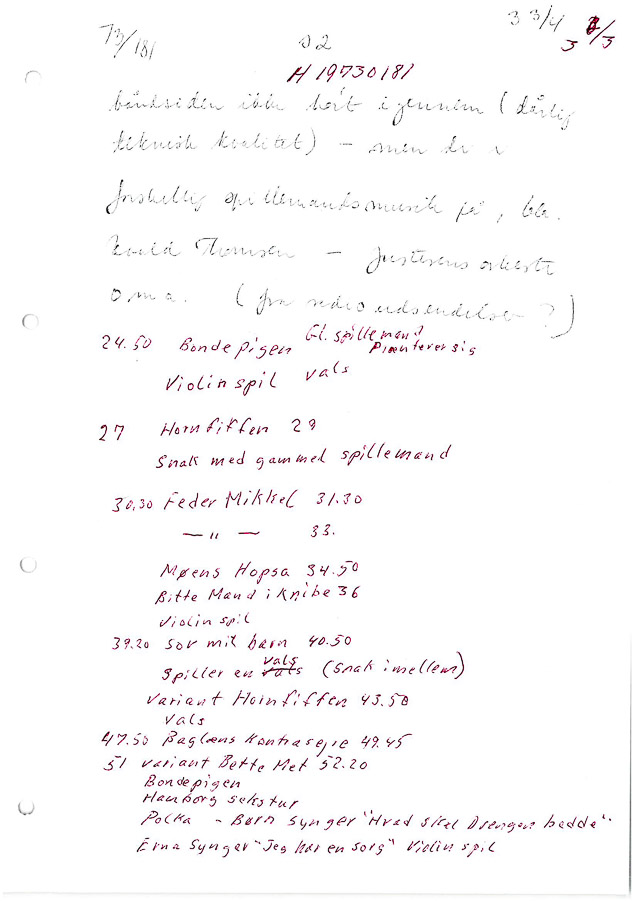 73/181 S2 3 3/4 3 2/3
H 19730181
båndsiden ikke hørt igennem (dårlig
teknisk kvalitet) – men der er
forskellig spillemandsmusik på, bla.
Evald Thomsen – Justesens orkester
o.m.a. (fra radioudsendelser?)
24.50 Bondepigen Gl. spillemand
Violinspil vals
27 Hornfiffen 29
Snak med gammel spillemand
30.30 Feder Mikkel 31.30
— " — 33.
Møens Hopsa 34.50
Bitte Mand i Knibe 36
Violin spil
39.20 Sov mit barn 40.50
Spiller en vals (Snak imellem)
Variant Hornfiffen 43.50
Vals
47.50 Baglæns Kontrasejre 49.45
51 variant Bette Met 52.20
Bondepigen
Hamborg sekstur
Polka - Børn synger "Hvad skal Drengen hedde"
Erna Synger "Jeg har en sorg" Violin spil